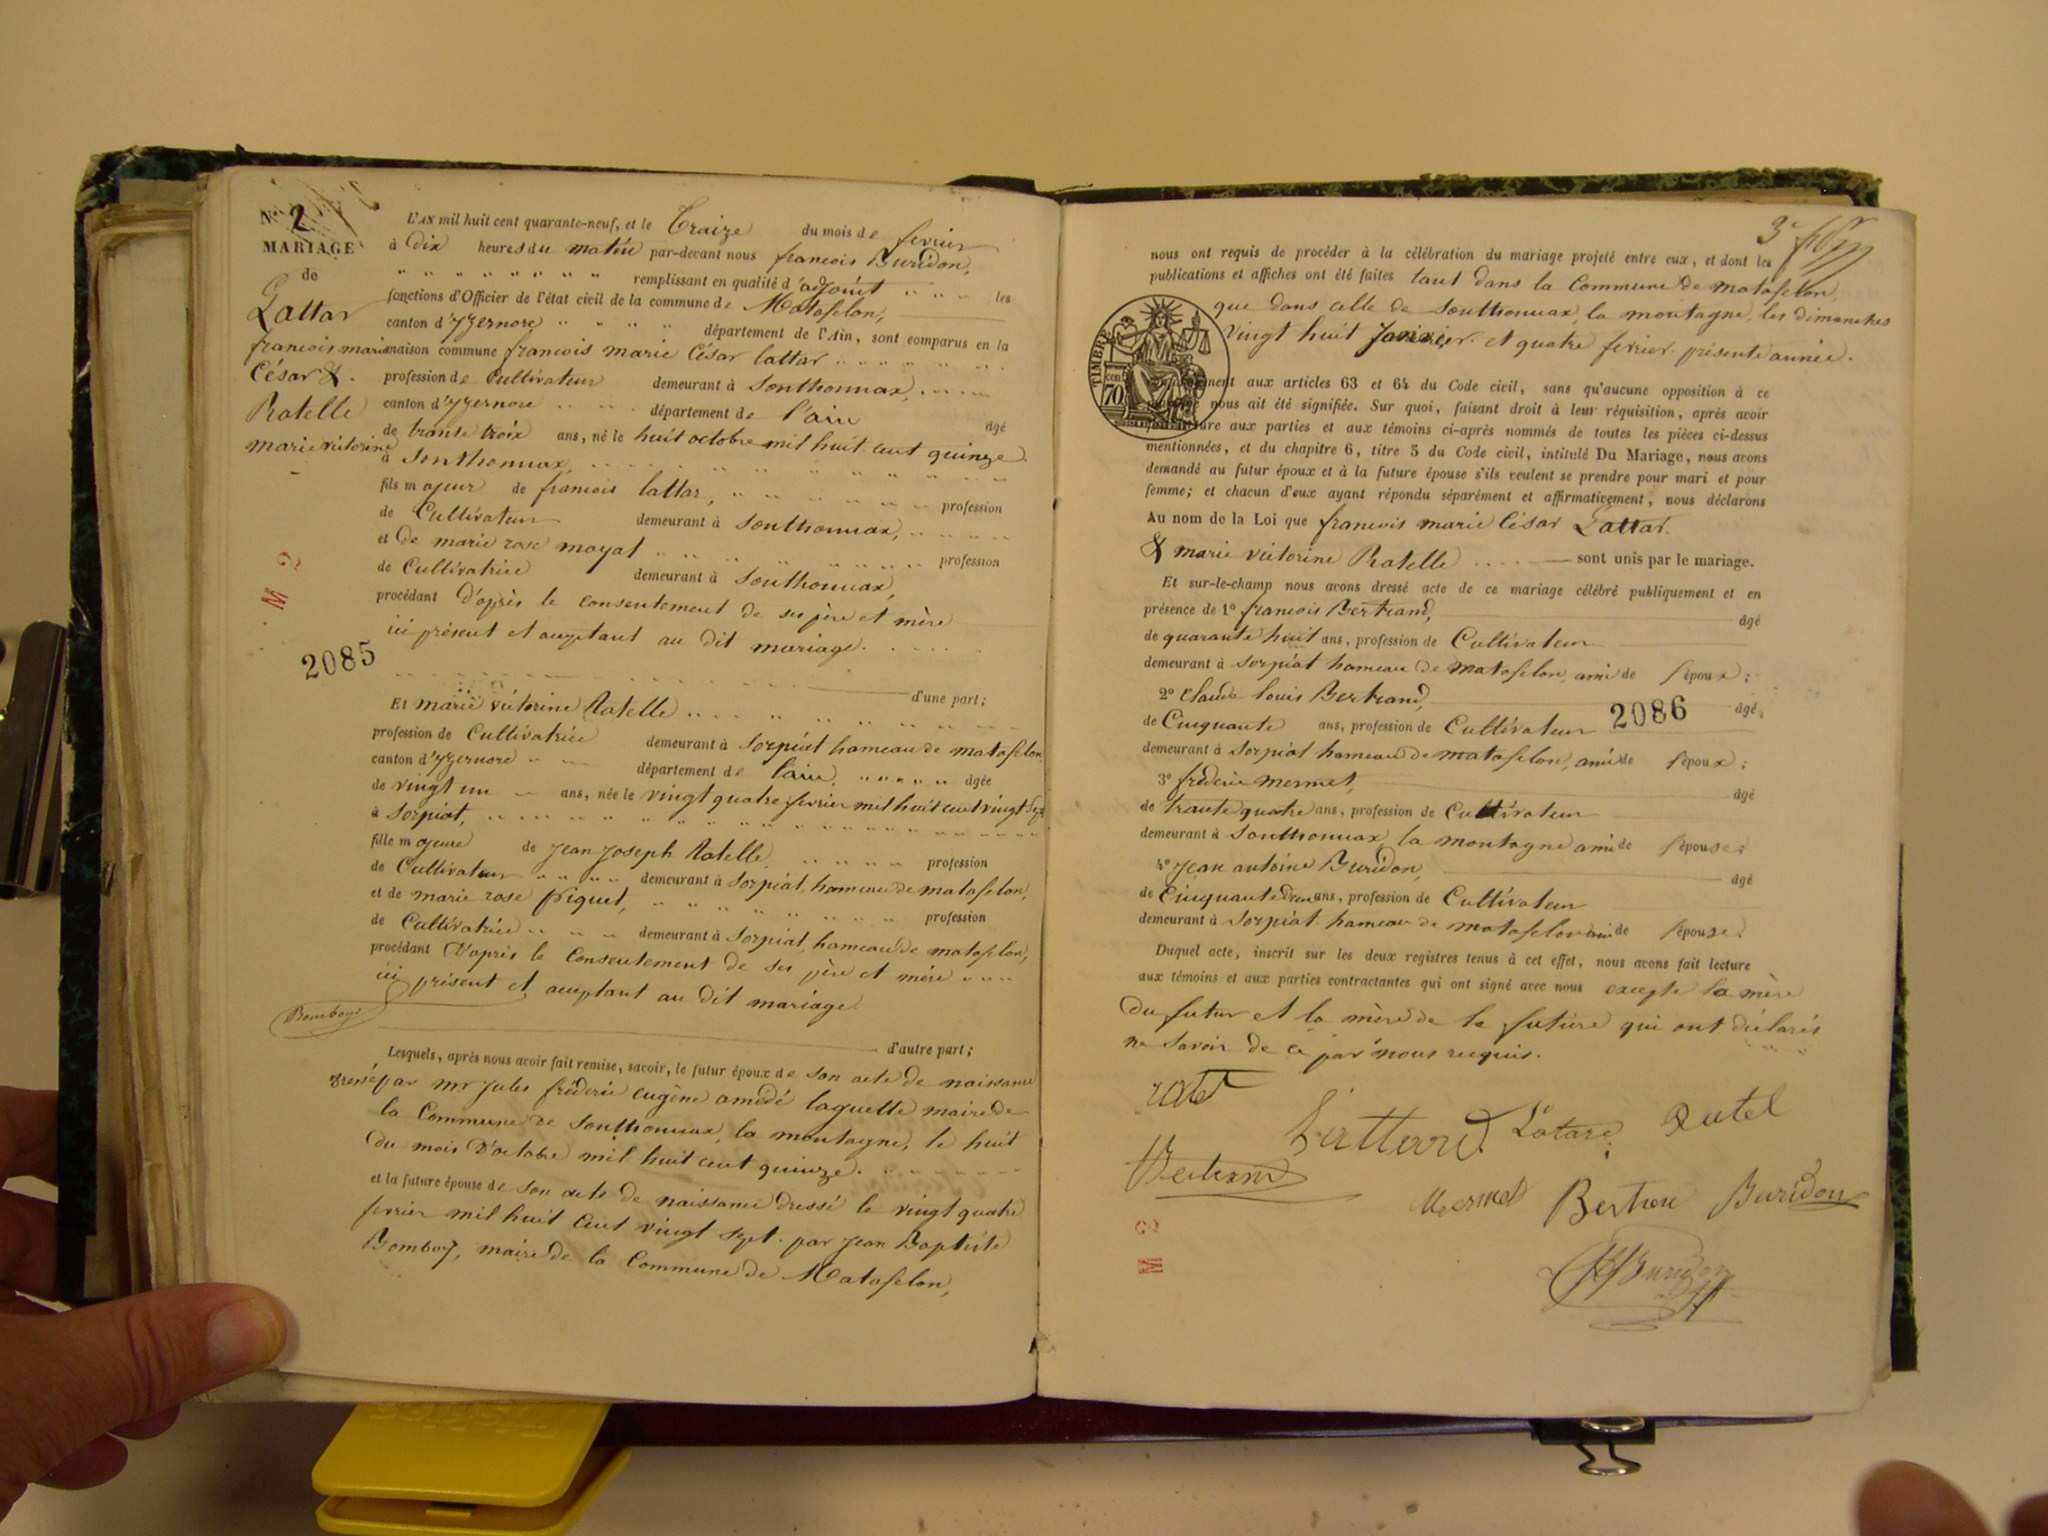 N° 2
MARIAGE
de
Lattar
francois marie
César &.
Ratelle
marie victorine
M 2
2085
L'AN mil huit cent quarante-neuf, et le Traize du mois de fevrier
à dix heures du matin par-devant nous francois Buridon,
remplissant en qualité d'adjoint les
fonctions d'Officier de l'état civil de la commune de Matafelon,
canton d'yzernore département de l'Ain, sont comparus en la
maison commune francois marie César lattar
profession de Cultivateur demeurant à Sonthonnax,
canton d'yzernore département de l'ain âgé
de trante troix ans, né le huit octobre mil huit cent quinze
à Sonthonnax,
fils majeur de francois lattar, profession
de Cultivateur demeurant à Sonthonnax,
et de marie rose moyat profession
de Cultivatrice demeurant à Sonthonnax,
procédant d'après le consentement de ses père et mère
ici présent et aceptant au dit mariage.
d'une part;
Et marie victorine Ratelle
profession de Cultivatrice demeurant à Sorpiat hameau de matafelon
canton d'yzernore département de l'ain, âgée
de vingt un ans, née le vingt quatre fevrier mil huit cent vingt Sept
à Sorpiat,
fille majeure de Jean Joseph Ratelle profession
de Cultivateur demeurant à Sorpiat, hameau de matafelon,
et de marie rose piquet, profession
de Cultivatrice demeurant à Sorpiat, hameau de matafelon,
procédant d'après le Consentement de ses père et mère
ici présent et aceptant au dit mariage
Bomboy
d'autre part;
Lesquels, après nous avoir fait remise, savoir, le futur époux de son acte de naissance
dressé par mr Jules fréderic eugène amédé laguette maire de
la Commune de Sonthonnax, la montagne, le huit
du mois d'octobre mil huit cent quinze.
et la future épouse de son acte de naissance dressé le vingt quatre
fevrier mil huit cent vingt sept. par Jean Baptiste
Bomboy, maire de la Commune de Matafelon,
3e
nous ont requis de procéder à la célébration du mariage projeté entre eux, et dont les
publications et affiches ont été faites tant dans la Commune de matafelon,
que dans celle de Sonthonnax, la montagne, les dimanches
vingt huit Janvier et quatre fevrier présente année.
TIMBRE
70
aux articles 63 et 64 du Code civil, sans qu'aucune opposition à ce
nous ait été signifiée. Sur quoi, faisant droit à leur réquisition, après avoir
aux parties et aux témoins ci-après nommés de toutes les pièces ci-dessus
mentionnées, et du chapitre 6, titre 5 du Code civil, intitulé Du Mariage, nous avons
demandé au futur époux et à la future épouse s'ils veulent se prendre pour mari et pour
femme; et chacun d'eux ayant répondu séparément et affirmativement, nous déclarons
Au nom de la Loi que francois marie César Lattar.
& marie victorine Ratelle sont unis par le mariage.
Et sur-le-champ nous avons dressé acte de ce mariage célébré publiquement et en
présence de 1° francois Bertrand, âgé
de quarante huit ans, profession de Cultivateur
demeurant à Sorpiat hameau de matafelon, ami de l'époux;
2° Claude louis Bertrand, âgé
de Cinquante ans, profession de Cultivateur 2086
demeurant à Sorpiat hameau de matafelon, ami de l'époux;
3° fréderic mermet, âgé
de trante quatre ans, profession de Cultivateur
demeurant à Sonthonnax, la montagne ami de l'épouse;
4° Jean antoine Buridon, âgé
de Cinquante deux ans, profession de Cultivateur
demeurant à Sorpiat hameau de matafelon ami de l'épouse.
Duquel acte, inscrit sur les deux registres tenus à cet effet, nous avons fait lecture
aux témoins et aux parties contractantes qui ont signé avec nous excepte la mère
du futur et la mère de la future qui ont déclarés
ne savoir de ce par nous requis.
ratel
Lattard Latare Ratel
Bertrand
Mermet Bertran Buridon
M 2
Buridon